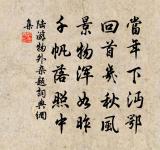 當年下沔鄂
回首幾秋風
景物渾如昨
千帆落照中
陸游物外杂題詞典網
集